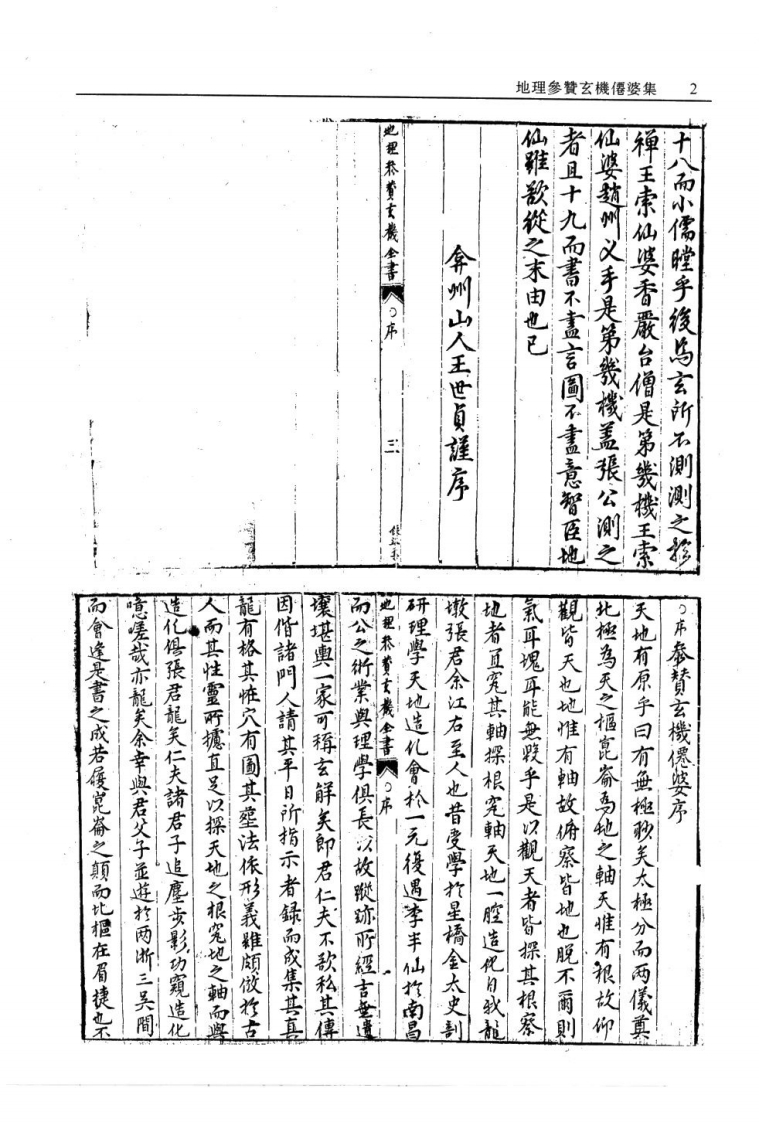 地理參贊玄機僊婆集 2
十八而小儒瞠乎後烏玄所不測測之於
禪王索仙婆香嚴台僧是第幾機王索
仙婆趙州义手是第幾機盖張公測之
者且十九而書不盡言圖不盡意智臣地
仙雖欲從之末由也已
弇州山人王世貞謹序
地理參贊玄機全書 ○序 三
○序參贊玄機僊婆序
天地有原乎曰有無極眇矣太極分而兩儀奠
北極為天之樞崑崙為地之軸天惟有根故仰
觀皆天也地惟有軸故俯察皆地也脫不爾則
氣耳塊耳能無毀乎是以觀天者皆探其根察
地者直究其軸探根究軸天地一腔造化自我龍
墩張君余江右至人也昔受學於星橋金太史剖
研理學天地造化會於一元復遇李半仙於南昌
地理參贊玄機全書 ○序
而公之術業與理學俱長以故蹤跡所經言無遺
壤堪輿一家可稱玄解矣郎君仁夫不欲私其傳
因偕諸門人請其平日所指示者録而成集其真
龍有格其恠穴有圖其塟法依形義雖頗倣於古
人而其性靈所攄直足以探天地之根究地之軸而與
造化俱張君龍矣仁夫諸君子追塵步影功窺造化
噫嗟哉亦龍矣余幸與君父子並遊於两浙三吳間
而會逢是書之成若履崑崙之顛而北樞在眉捷也不